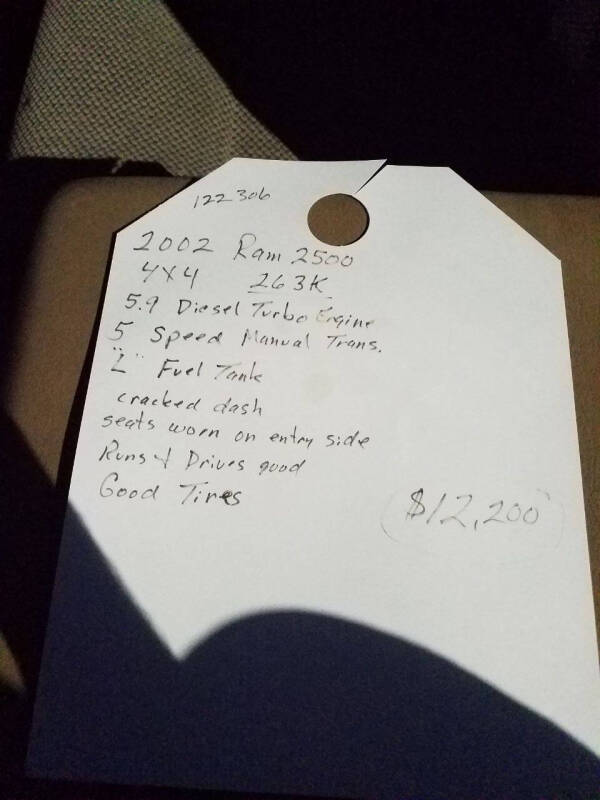 122306
2002 Ram 2500
4x4 263K
5.9 Diesel Turbo Engine
5 Speed Manual Trans.
"L" Fuel Tank
cracked dash
seats worn on entry side
Runs & Drives good
Good Tires
$12,200